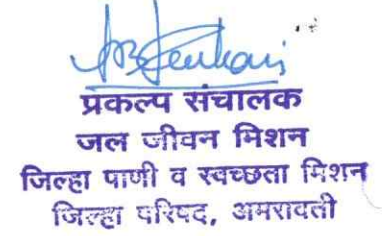 प्रकल्प संचालक
जल जीवन मिशन
जिल्हा पाणी व स्वच्छता मिशन
जिल्हा परिषद, अमरावती